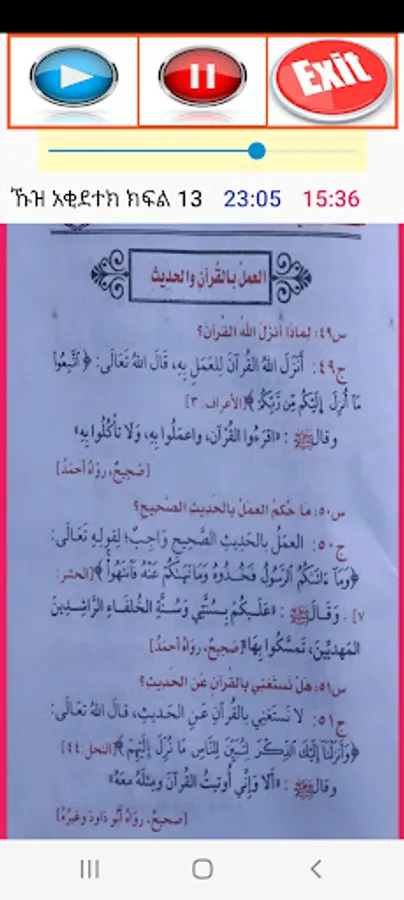 Exit
ኹዝ አቂደተክ ክፍል 13 23:05 15:36
العمل بالقُرآنِ والحَدِيث
س٤٩: لِماذَا أَنزَلَ اللهُ القُرآنَ؟
ج٤٩: أَنْزَلَ اللهُ القُرآنَ لِلعَمَلِ بِهِ، قَالَ اللهُ تَعَالَى: ﴿ٱتَّبِعُوا۟
مَآ أُنزِلَ إِلَيْكُم مِّن رَّبِّكُمْ﴾[الأعراف: ٣]
وقالﷺ: «اقرَءُوا القُرْآنَ، واعمَلُوا بِهِ، وَلا تَأكُلُوا بِهِ»
[صَحِيحٌ، رَوَاهُ أحمَدُ]
س٥٠: مَا حُكمُ العمَلُ بالحَدِيثِ الصَّحِيحِ؟
ج٥٠: العمَلُ بالحَدِيثِ الصَّحِيحِ وَاجِبٌ؛ لِقولِهِ تَعَالَى:
﴿وَمَآ ءَاتَىٰكُمُ ٱلرَّسُولُ فَخُذُوهُ وَمَا نَهَىٰكُمْ عَنْهُ فَٱنتَهُوا۟﴾[الحشر:
٧]. وَقَالَﷺ: «عَلَيكُمْ بِسُنَّتِي وسُنَّةِ الخُلَفَاءِ الرَّاشِدِينَ
المَهدِيِّينَ، تَمسَّكُوا بِهَا»[صَحِيحٌ، رَوَاهُ أحمَدُ]
س٥١: هَلْ نَستَغنِي بالقُرآنِ عَنِ الحَدِيثِ؟
ج٥١: لا نَستَغنِي بالقُرآنِ عَنِ الحَديثِ، قَالَ اللهُ تعَالَى:
﴿وَأَنزَلْنَآ إِلَيْكَ ٱلذِّكْرَ لِتُبَيِّنَ لِلنَّاسِ مَا نُزِّلَ إِلَيْهِمْ﴾[النحل: ٤٤]
وقالﷺ: «أَلَا وَإِنِّي أُوتِيتُ القُرآنَ ومِثلَهُ مَعَهُ»
[صحيحٌ، رَوَاهُ أَبُو دَاودَ وغَيرُهُ]